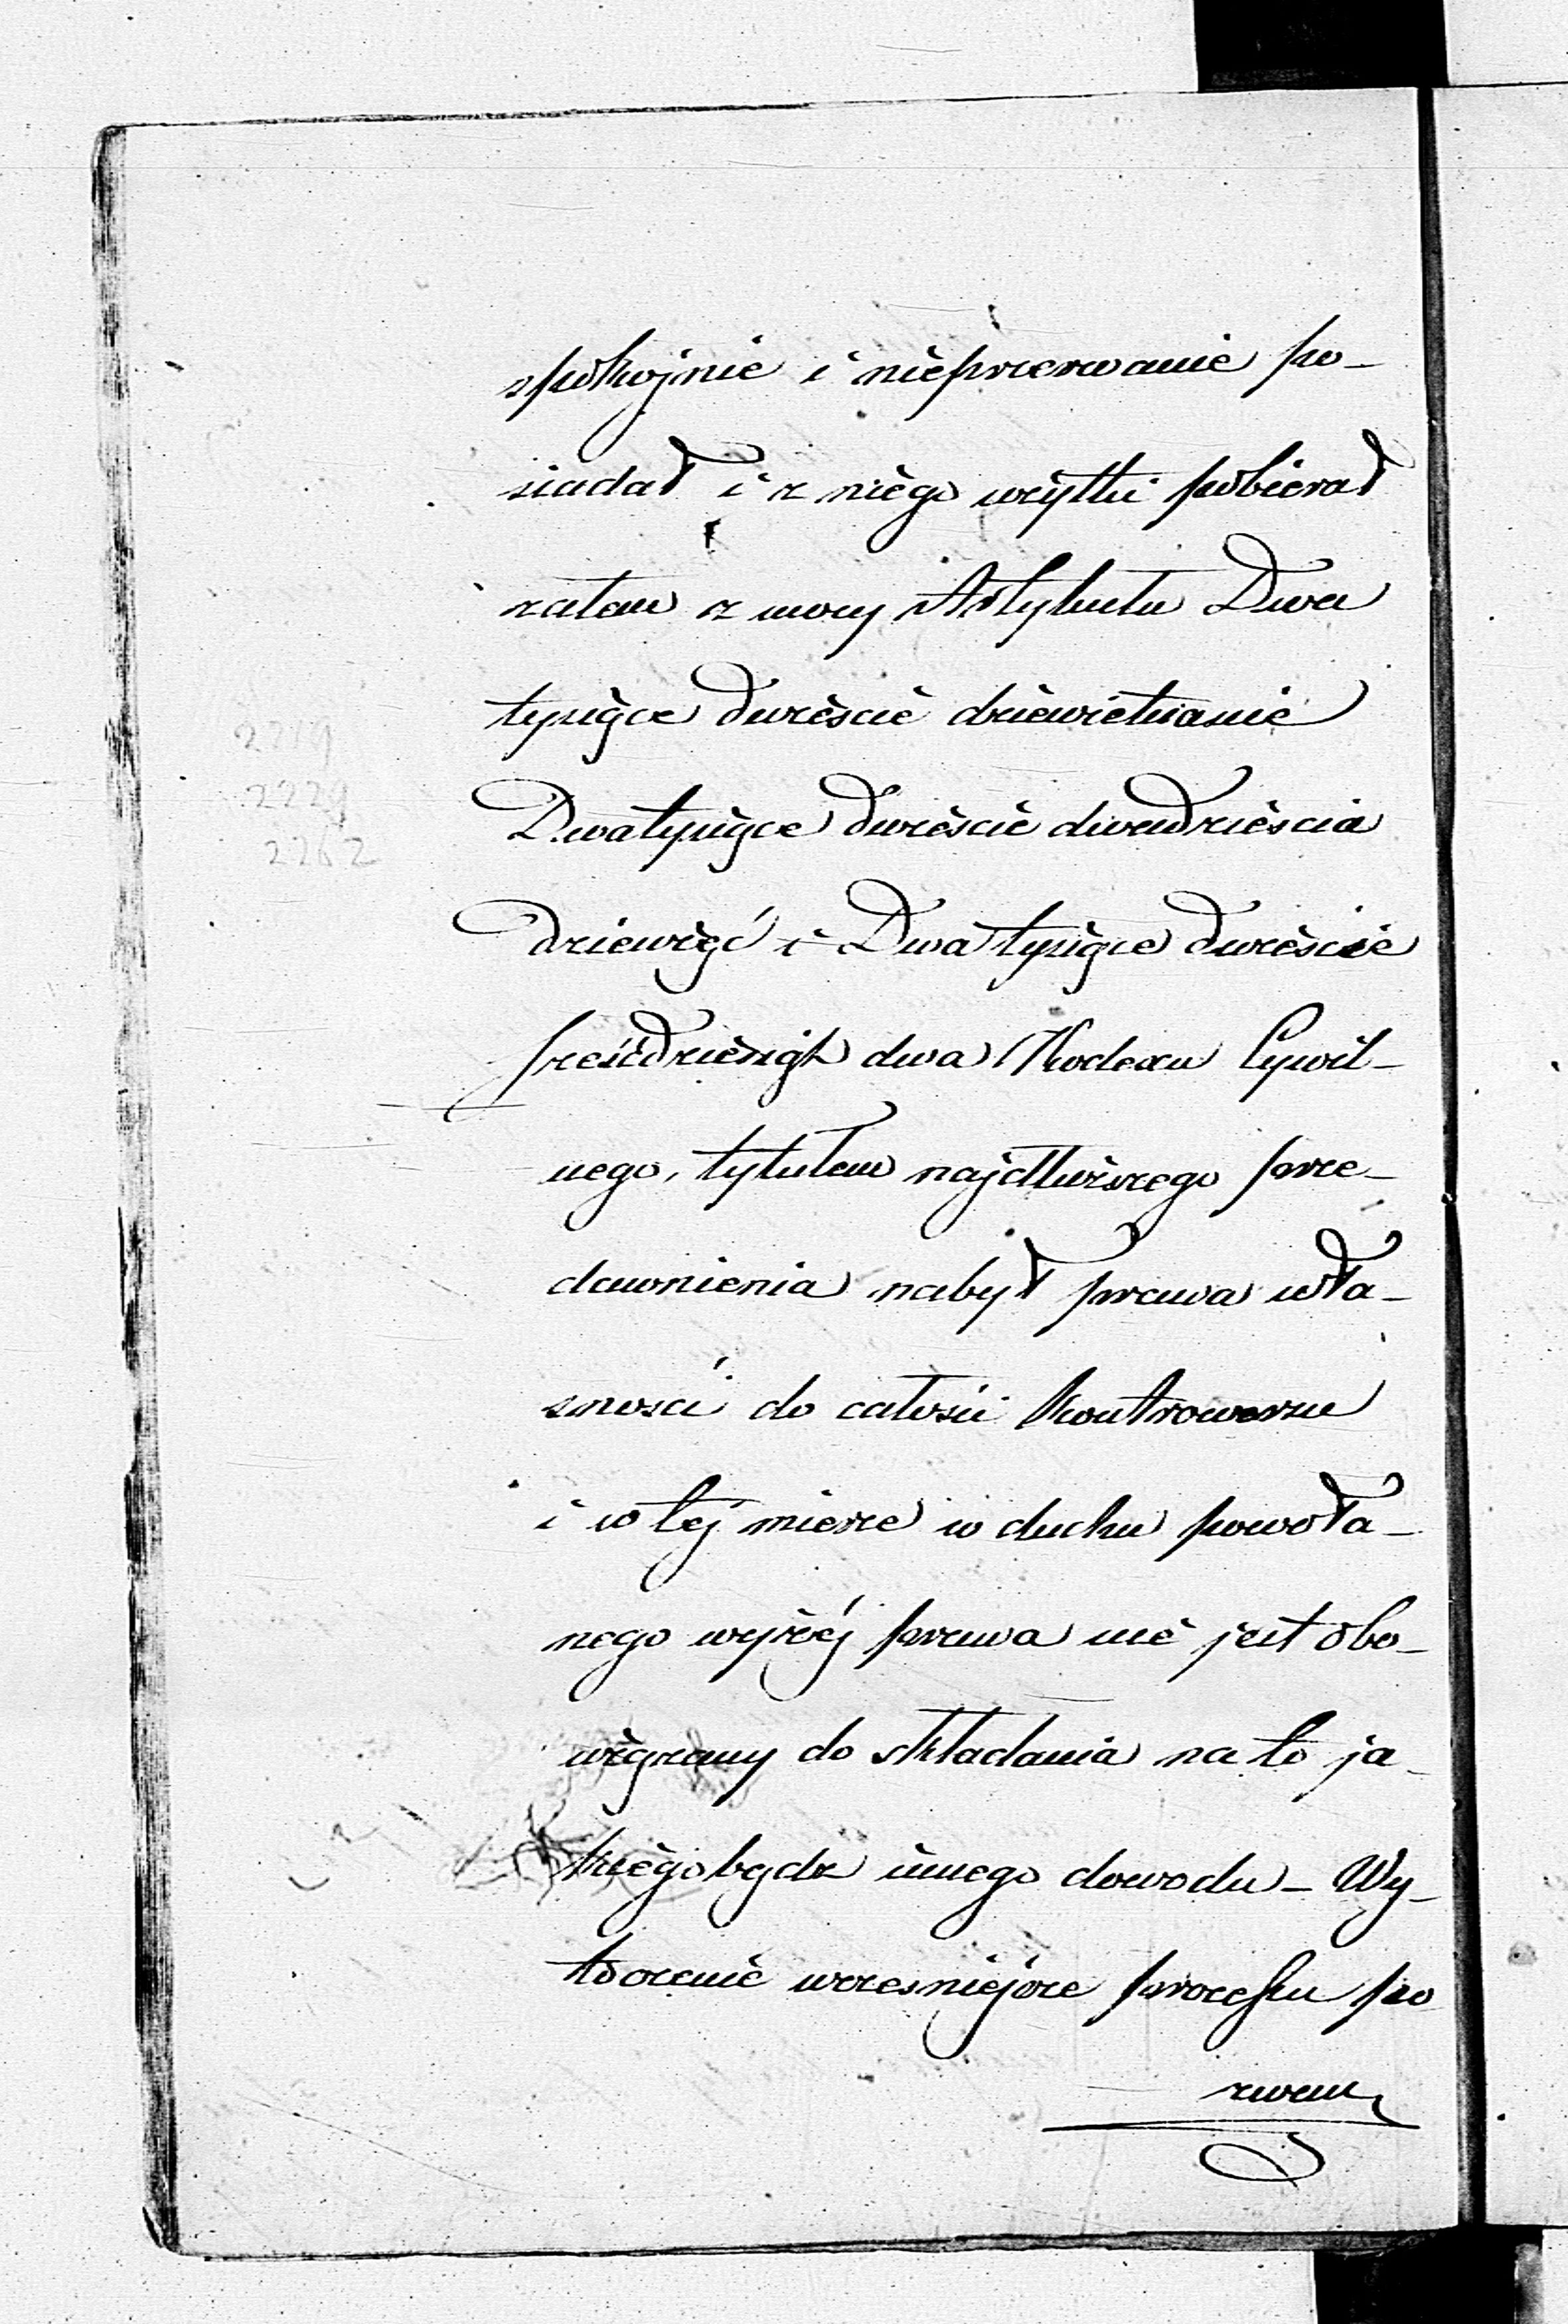 spokojnie i nieprzerwanie po-
siadał i z niego użytki pobierał
zatem z mocy Artykułu Dwa
tysiące dwieście dziewietnanie
2219
Dwa tysiące dwieście dwudzieścia
2229
2262
dziewięć i Dwa tysiące dwieście
sześćdziesiąt dwa Kodexu Cywil-
nego, tytułem najdłuższego prze-
dawnienia nabył prawa wła-
sności do całości Kontrowersu
i w tej mierze w duchu powoła-
nego wyżéj prawa nie jest obo-
wiązany do składania na to ja-
kiegobądz innego dowodu - Wy-
toczenie wcześniejsze processu po
zwem